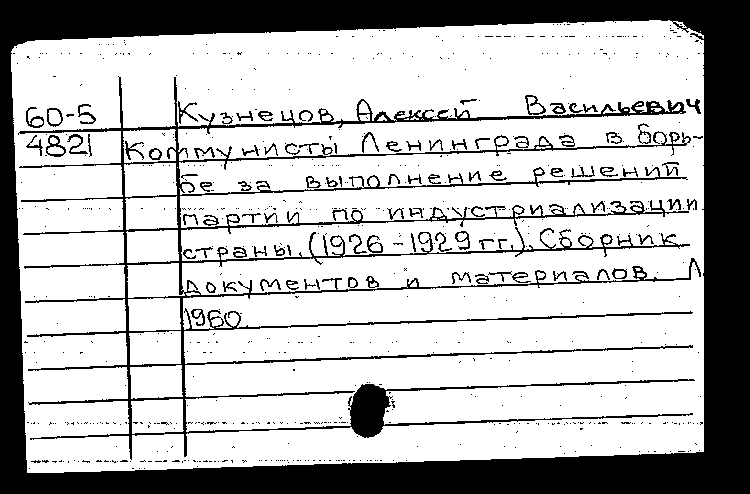 60-5 Кузнецов, Алексей Васильевич
4821 Коммунисты Ленинграда в борь-
бе за выполнение решений
партии по индустриализации
страны. (1926-1929 гг.). Сборник
документов и материалов. Л
1960